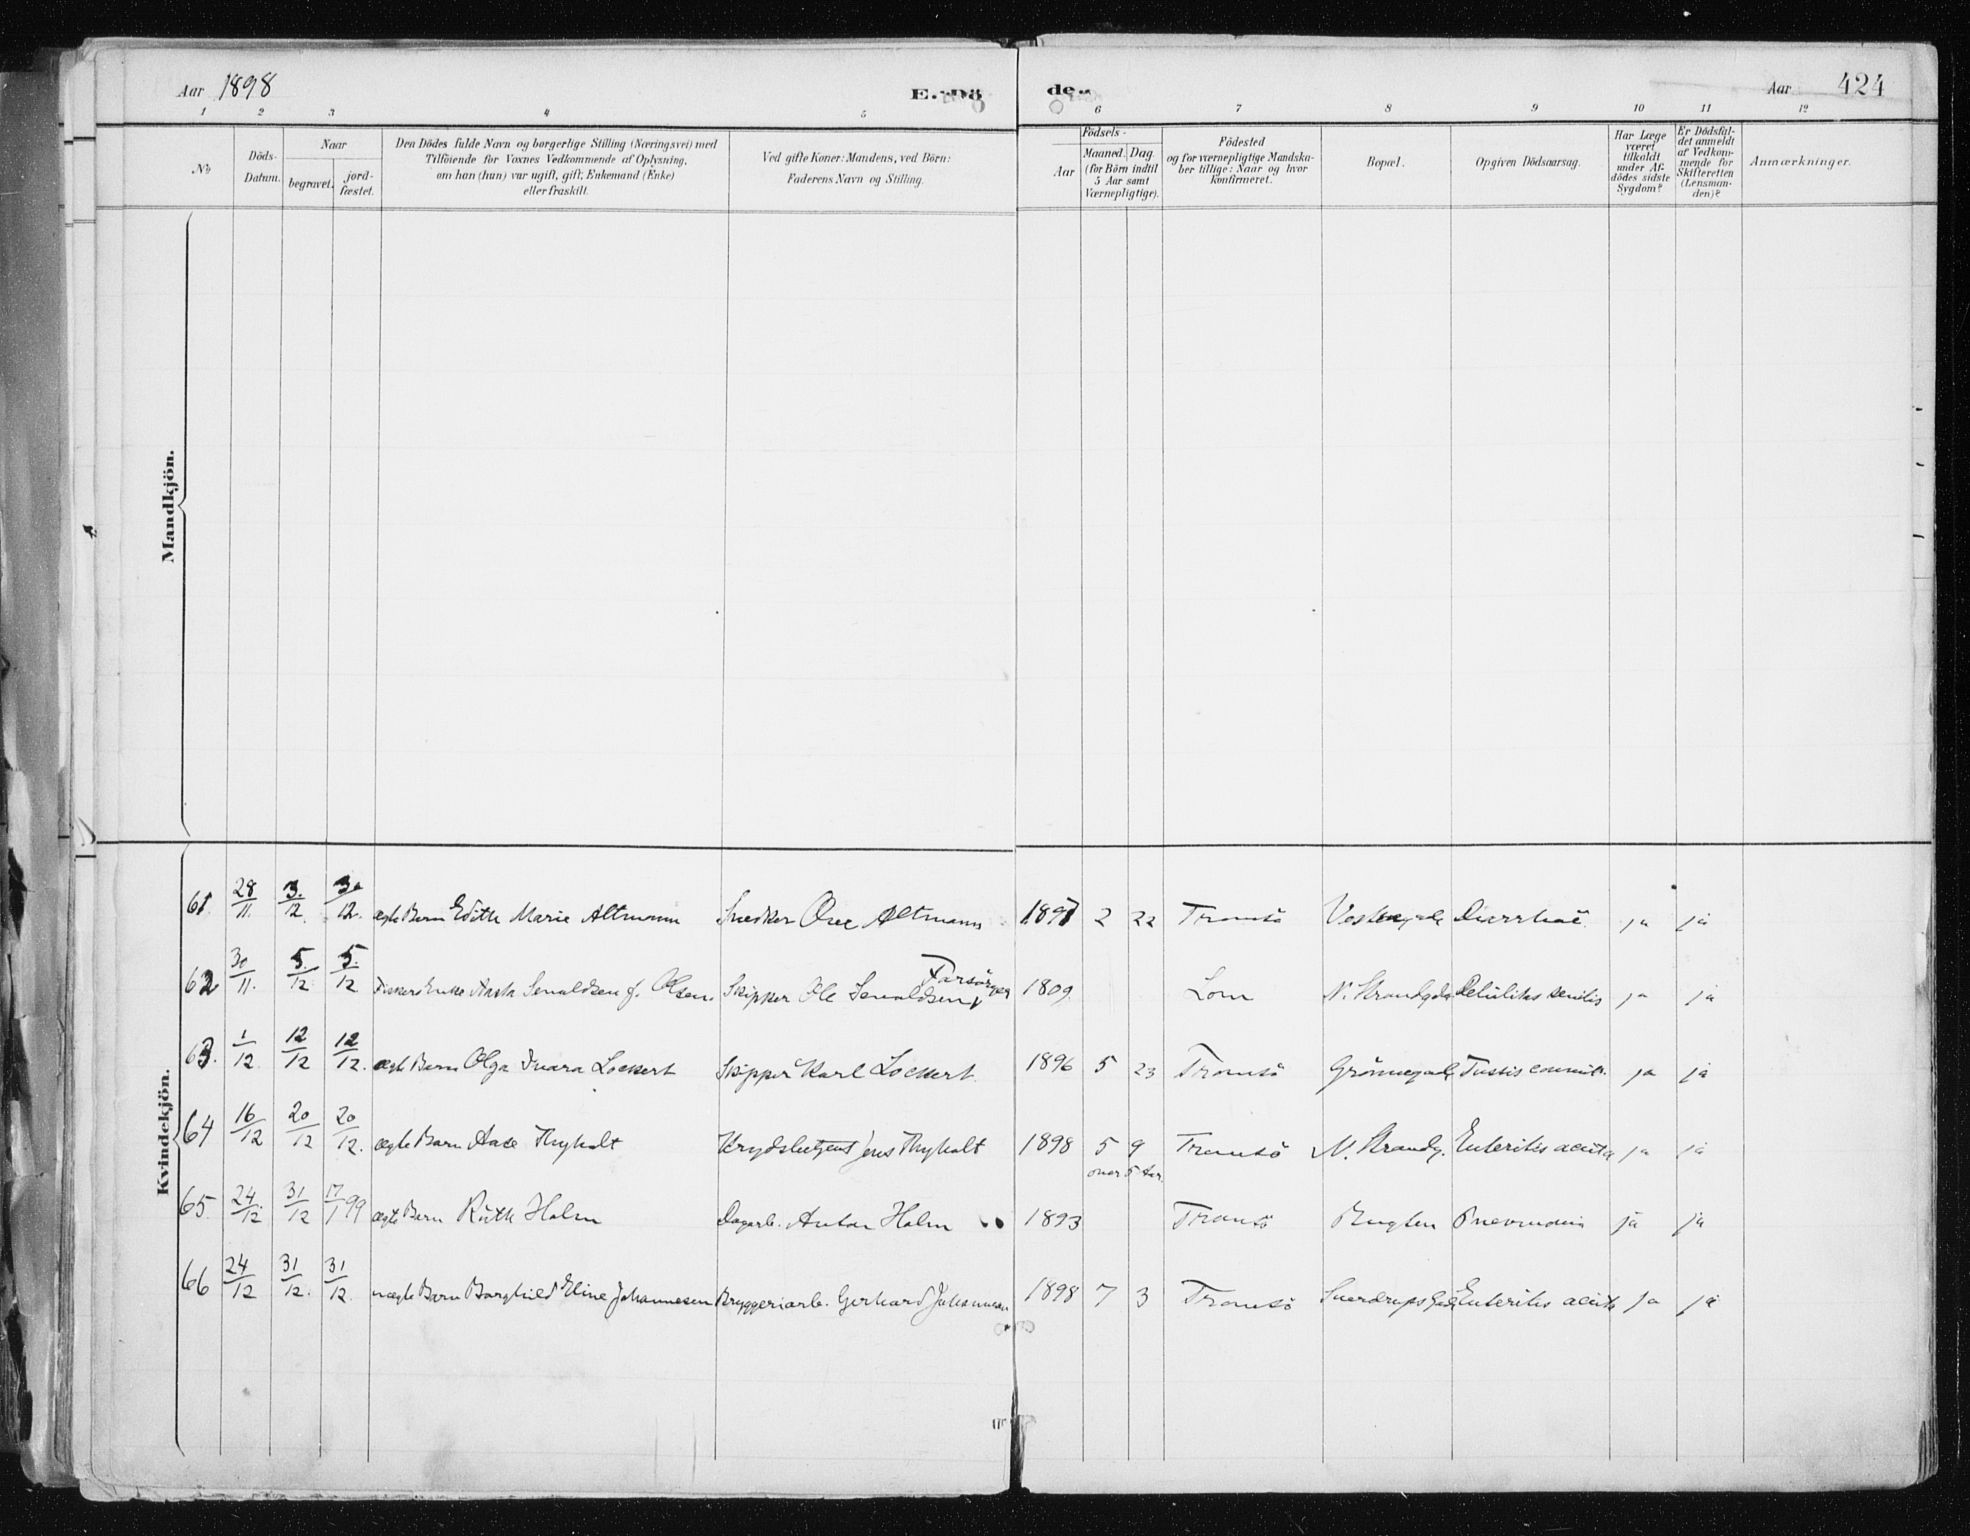 Aar 1898
E. Dö
de.
Aar 424
1 2 3 4 5 6 7 8 9 10 11 12
No
Döds-Datum.
Naar
begravet.
jord-fæstet.
Den Dödes fulde Navn og borgerlige Stilling (Næringsvei) med
Tilföiende for Voxnes Vedkommende af Oplysning,
om han (hun) var ugift, gift, Enkemand (Enke)
eller fraskilt.
Ved gifte Koner: Mandens, ved Börn:
Faderens Navn og Stilling.
Födsels-
Aar
Maaned. Dag.
(for Börn indtil
5 Aar samt
Værnepligtige).
Födested
og for værnepligtige Mandska-
ber tillige: Naar og hvor
konfirmeret.
Bopæl.
Opgiven Dödsaarsag.
Har Læge
været
tilkaldt
under Af-
dödes sidste
Sygdom?
Er Dödsfal-
det anmeldt
af Vedkom-
mende for
Skifteretten
(Lensman-
den)?
Anmærkninger.
Mandkjön.
Kvindekjön.
61 28/11. 3./12. 30/12. ægte Barn Edith Marie Altmann Snedker Altmann 1897 2 22 Tromsö Vestregade Diarrhoë ja ja
62 30/11. 5./12 5./12 Enke Olsen. Skipper Ole Forsörger 1809 Lom N. Strandgd. senilis ja ja
63. 1/12 12/12 12/12. ægte Barn Olga Lockert Skipper Karl Lockert 1896 5 23 Tromsö Grönnegade Tussis ja ja
64 16/12 20/12 20/12. ægte Barn Aase Thyholt Jens Thyholt 1898 5 9 Tromsö N. Strandg. Enteritis acuta ja ja
over 5 Aar.
65 24/12 31/12 17/1 99 ægte Barn Ruth Holm Dagarb. Anton Holm 1893 Tromsö Bugten Pneumoni ja ja
66 24/12 31/12. 31/12. uægte Barn Borghild Eline Johannesen Bryggeriarb. Gerhard Johannesen 1898 7 3 Tromsö Sverdrups Gade Enteritis acuta ja ja